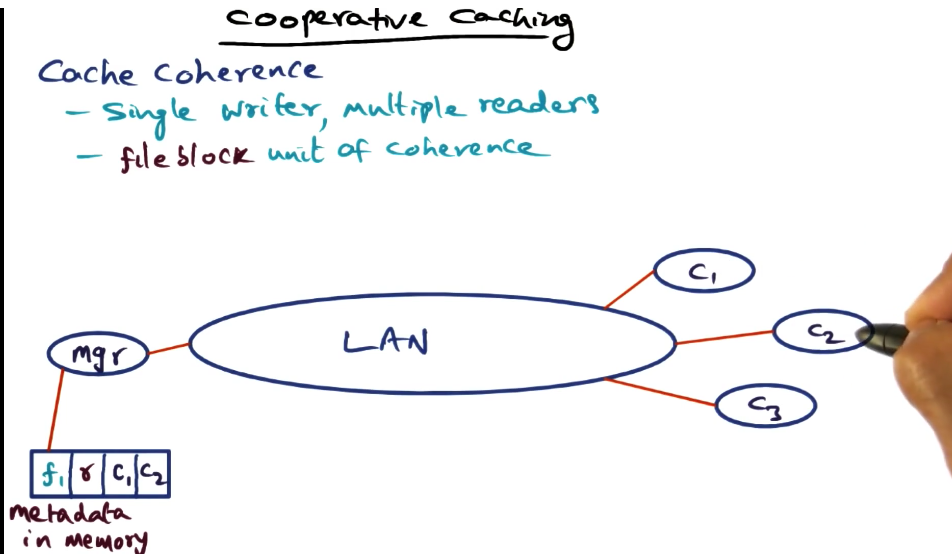 cooperative caching
Cache Coherence
- Single writer, multiple readers
- file block unit of coherence
C1
LAN
C2
mgr
C3
f1 r C1 C2
metadata
in memory